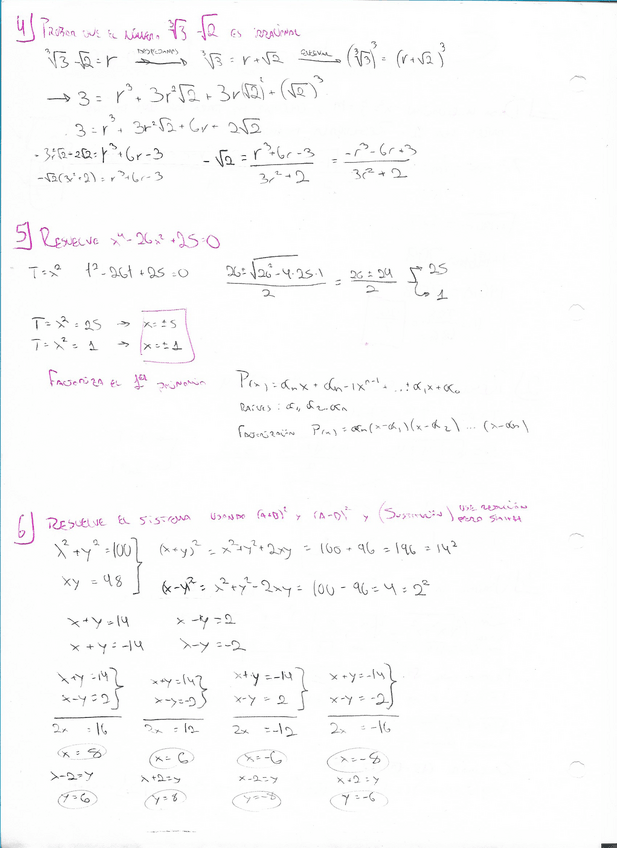 4) Probar que el número ∛3 - √2 es irracional
∛3 - √2 = r → ∛3 = r + √2 → (∛3)³ = (r + √2)³
→ 3 = r³ + 3r²√2 + 3r(√2)² + (√2)³
3 = r³ + 3r²√2 + 6r + 2√2
- 3r²√2 - 2√2 = r³ + 6r - 3
-√2(3r² + 2) = r³ + 6r - 3
-√2 = (r³ + 6r - 3)/(3r² + 2) = (-r³ - 6r + 3)/(3r² + 2)
5) Resuelve x⁴ - 26x² + 25 = 0
T = x² t² - 26t + 25 = 0 (26 ± √(26² - 4·25·1))/2 = (26 ± 24)/2 → 25
→ 1
T = x² = 25 → x = ±5
T = x² = 1 → x = ±1
Factoriza el 1er polinomio P(x) = αnx + αn-1xⁿ⁻¹ + ... + α1x + α0
Raíces: α1, α2...αn
Factorización P(x) = αn(x-α1)(x-α2) ... (x-αn)
6) Resuelve el sistema usando (a+b)² y (a-b)² y (sustitución) use reducción
x² + y² = 100 (x+y)² = x² + y² + 2xy = 100 + 96 = 196 = 14²
xy = 48 (x-y)² = x² + y² - 2xy = 100 - 96 = 4 = 2²
x + y = 14 x - y = 2
x + y = -14 x - y = -2
x+y = 14 x+y = 14 x+y = -14 x+y = -14
x-y = 2 x-y = -2 x-y = 2 x-y = -2
2x = 16 2x = 12 2x = -12 2x = -16
x = 8 x = 6 x = -6 x = -8
x-2 = y x+2 = y x-2 = y x+2 = y
y = 6 y = 8 y = -8 y = -6